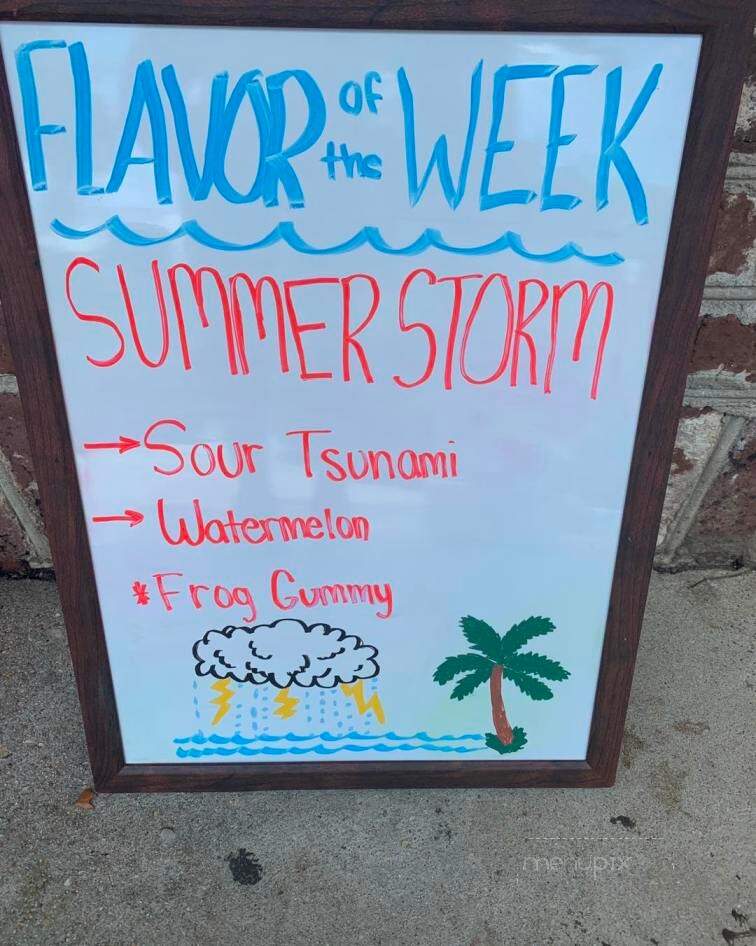 FLAVOR of the WEEK
SUMMER STORM
→Sour Tsunami
→Watermelon
*Frog Gummy
menupix